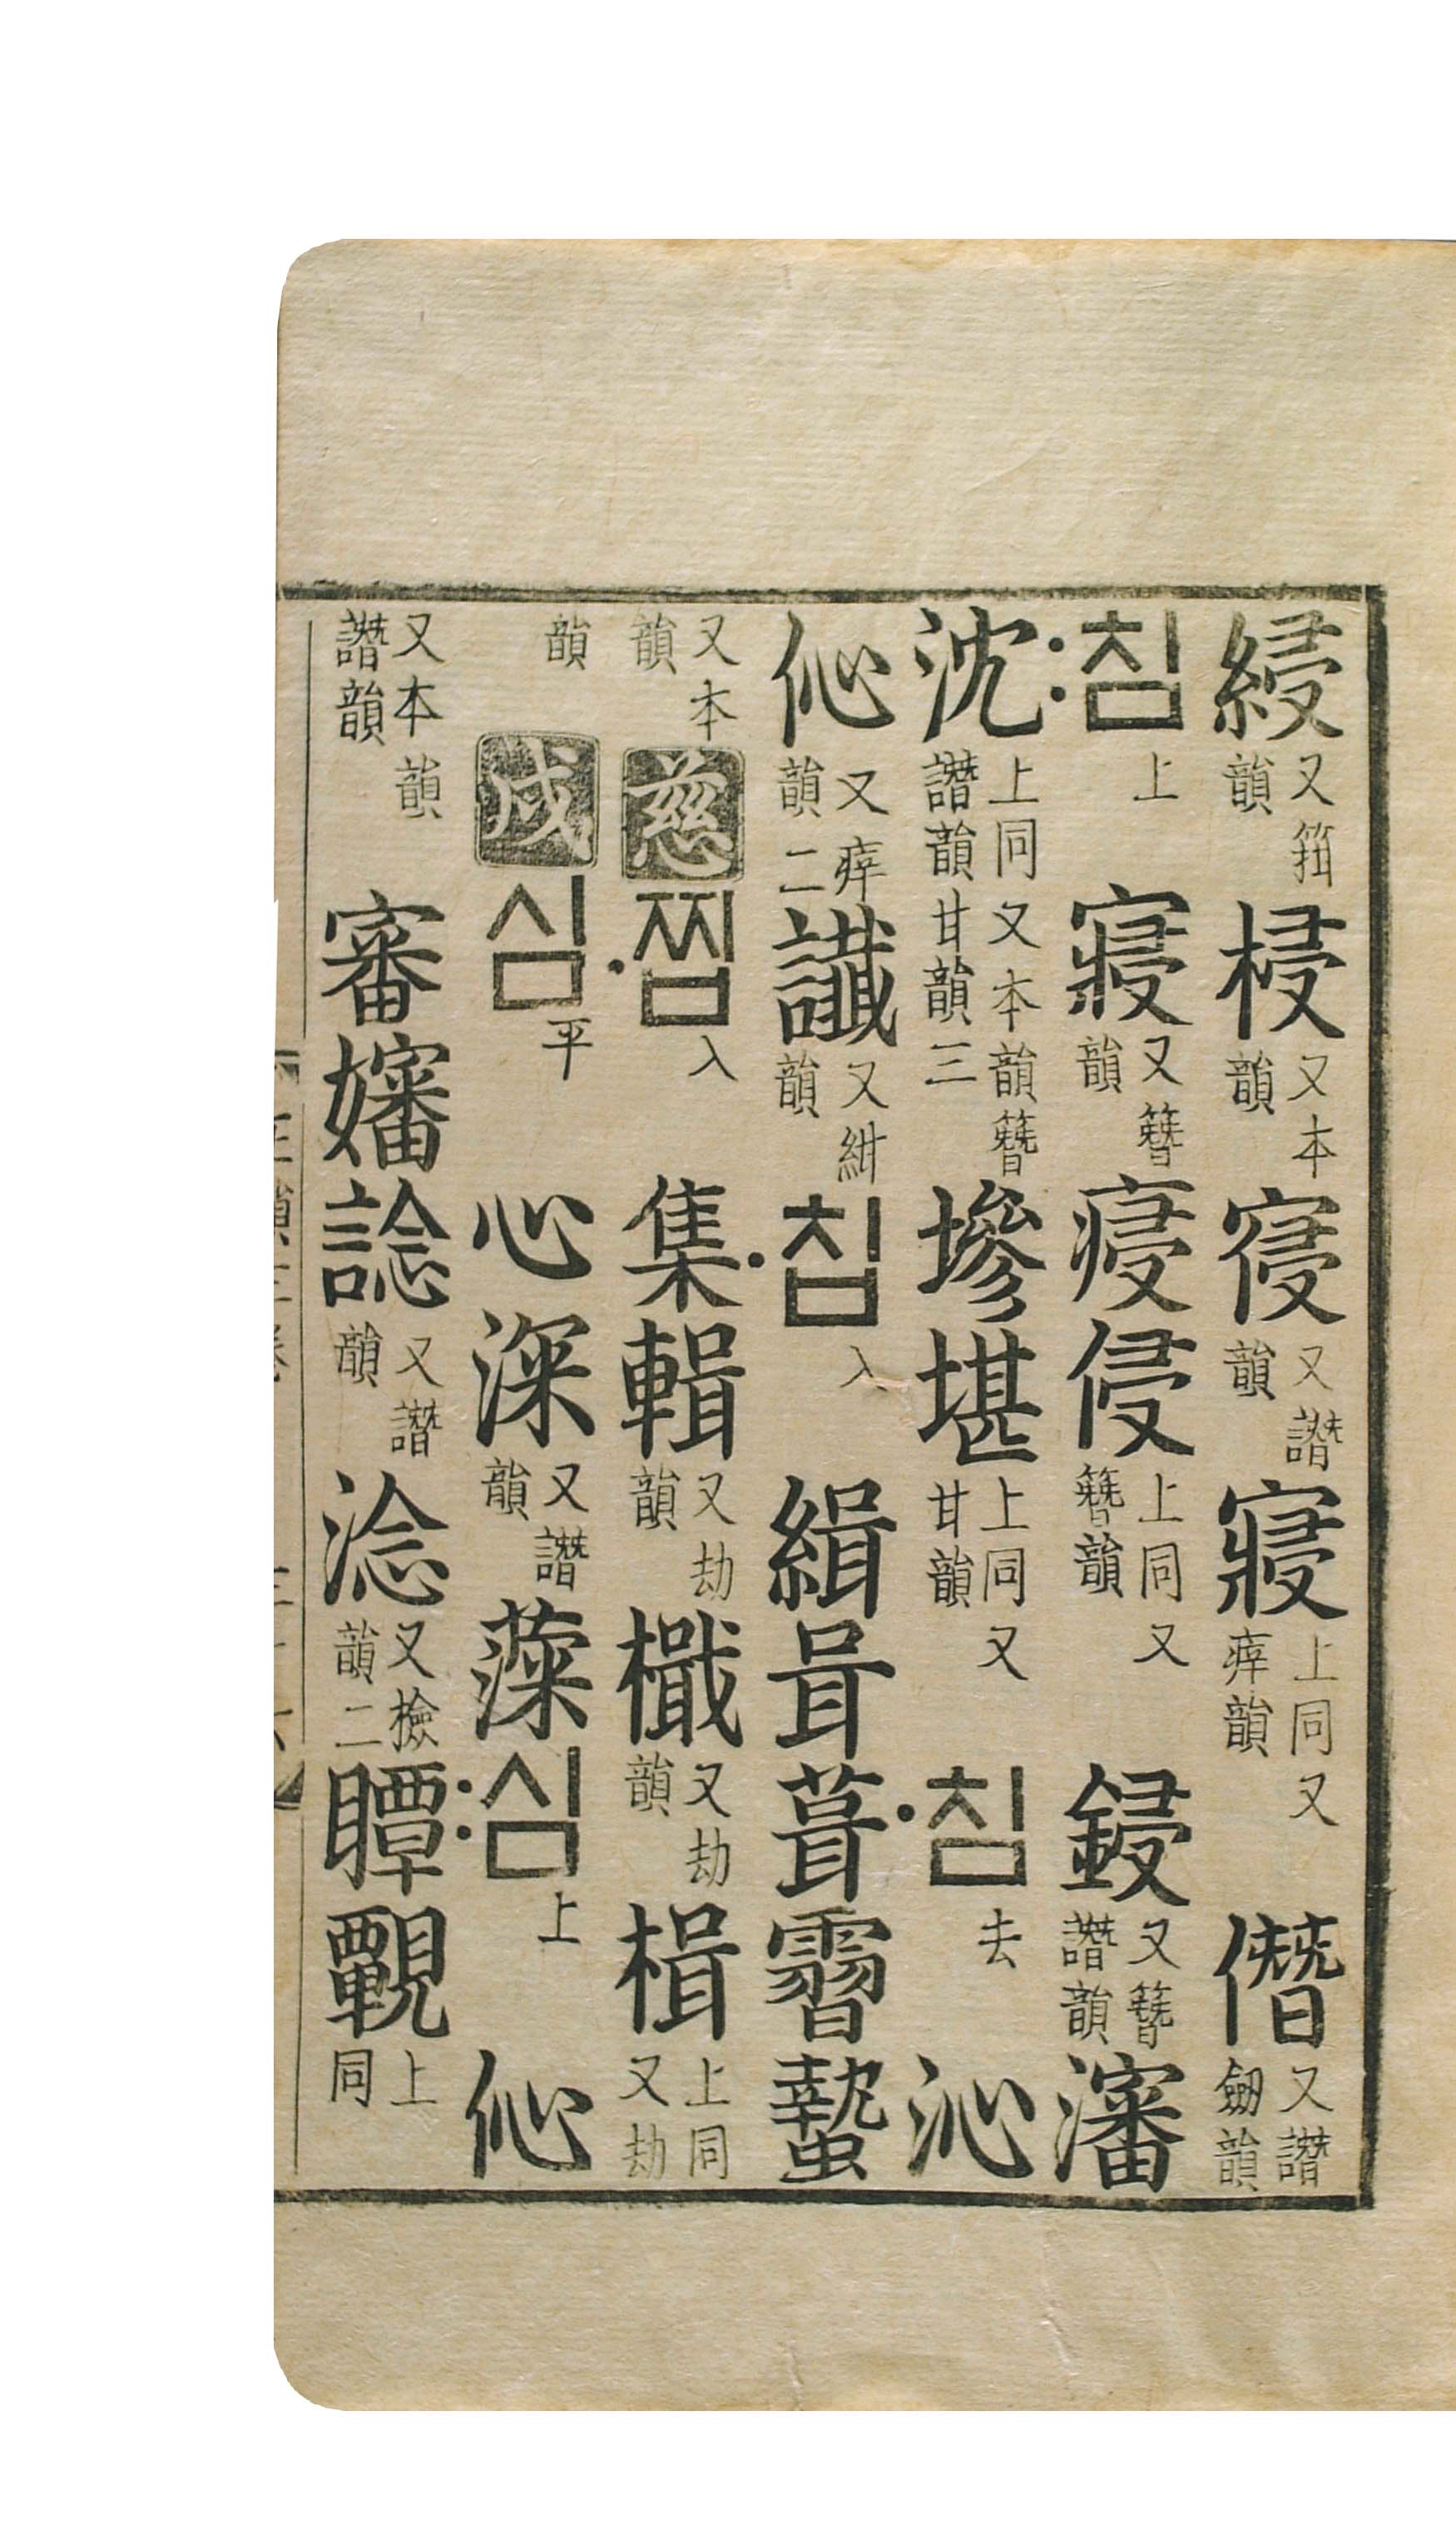 綅又䇯韻梫又本韻寑又譖韻𡪢上同又瘁韻僭又譖劒韻
:침上寢又簪韻𤸁侵上同又簪韻鋟又簪譖韻瀋
沈上同又本韻簪譖韻甘韻三墋堪上同又甘韻·침去沁
伈又瘁韻二讖又紺韻·침入緝咠葺霫蟄
又本韻慈·찝入集輯又劫韻檝又劫韻楫上同又劫
韻戌심平心深又譖韻蕵:심上伈
又本韻譖韻審嬸諗又譖韻淰又撿韻二瞫覾上同